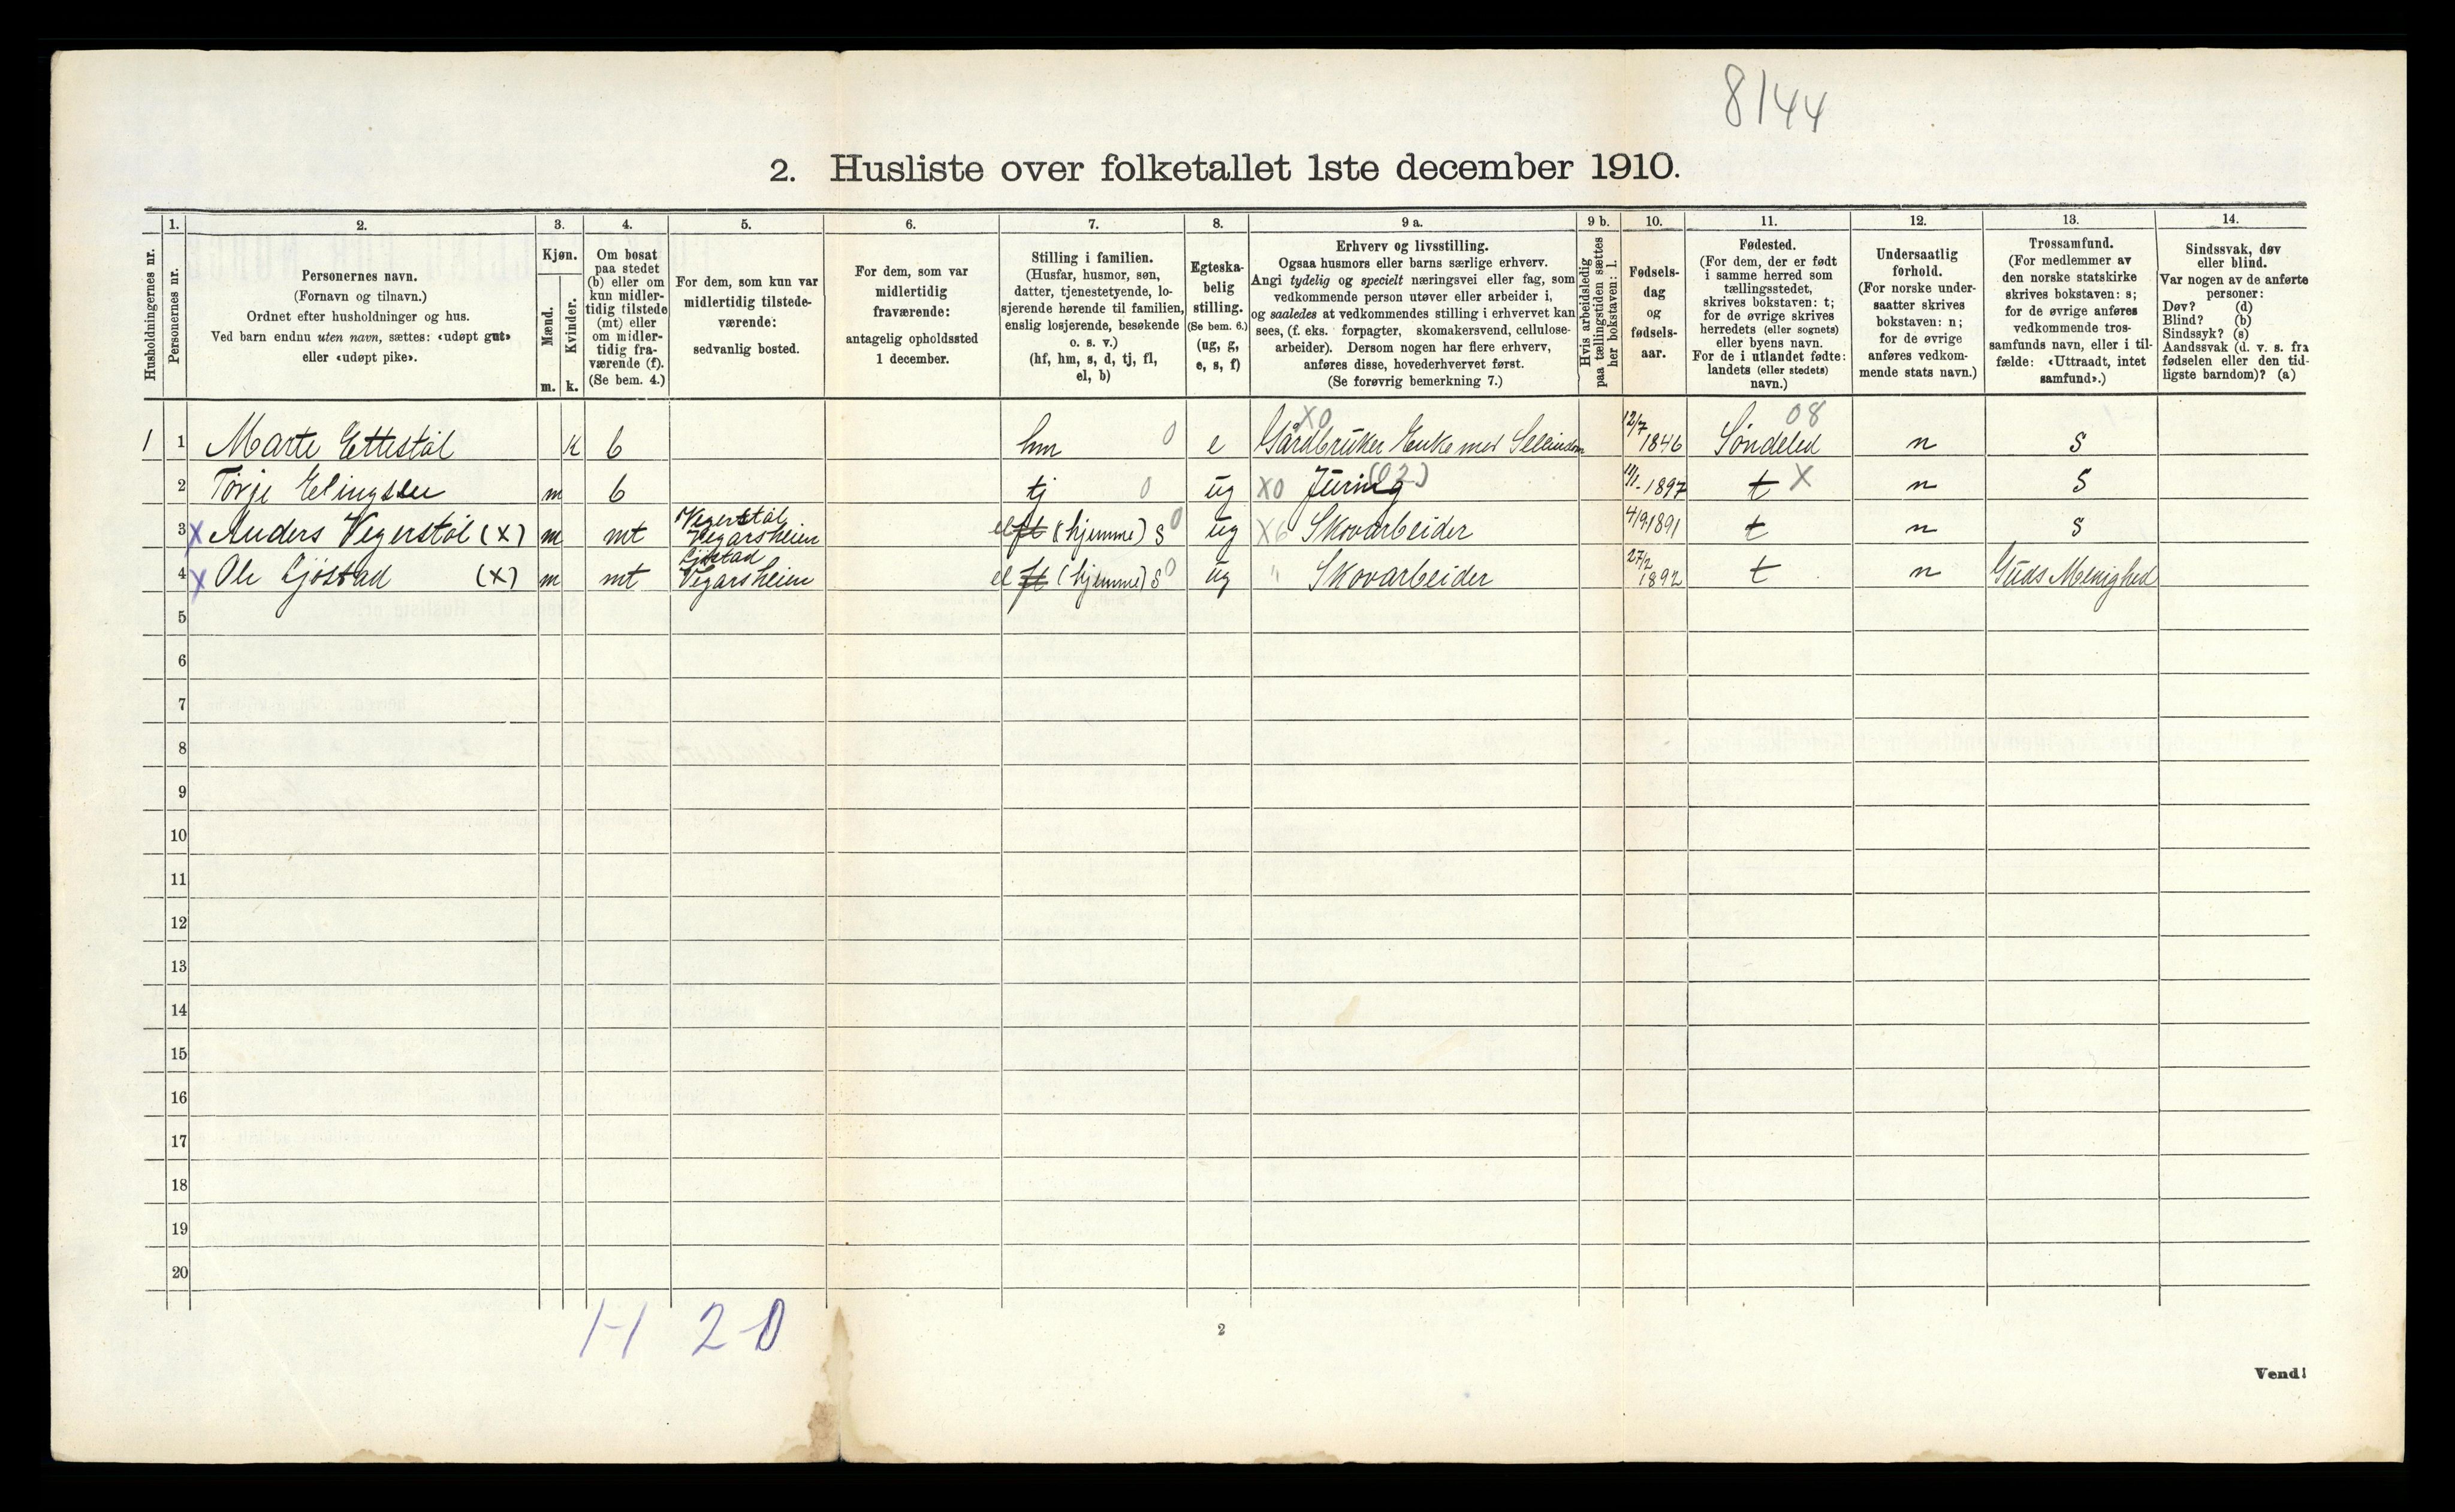 8144
2. Husliste over folketallet 1ste december 1910.
1. 2. 3. 4. 5. 6. 7. 8. 9 a. 9 b. 10. 11. 12. 13. 14.
Husholdningernes nr.
Personernes nr.
Personernes navn.
(Fornavn og tilnavn.)
Ordnet efter husholdninger og hus.
Ved barn endnu uten navn, sættes: «udøpt gut»
eller «udøpt pike».
Kjøn.
Mænd.
Kvinder.
m. k.
Om bosat
paa stedet
(b) eller om
kun midler-
tidig tilstede
(mt) eller
om midler-
tidig fra-
værende (f).
(Se bem. 4.)
For dem, som kun var
midlertidig tilstede-
værende:
sedvanlig bosted.
For dem, som var
midlertidig
fraværende:
antagelig opholdssted
1 december.
Stilling i familien.
(Husfar, husmor, søn,
datter, tjenestetyende, lo-
sjerende hørende til familien,
enslig losjerende, besøkende
o. s. v.)
(hf, hm, s, d, tj, fl,
el, b)
Egteska-
belig
stilling.
(Se bem. 6.)
(ug, g,
e, s, f)
Erhverv og livsstilling.
Ogsaa husmors eller barns særlige erhverv.
Angi tydelig og specielt næringsvei eller fag, som
vedkommende person utøver eller arbeider i,
og saaledes at vedkommendes stilling i erhvervet kan
sees, (f. eks. forpagter, skomakersvend, cellulose-
arbeider). Dersom nogen har flere erhverv,
anføres disse, hovederhvervet først.
(Se forøvrig bemerkning 7.)
Hvis arbeidsledig
paa tællingstiden sættes
her bokstaven: l.
Fødsels-
dag
og
fødsels-
aar.
Fødested.
(For dem, der er født
i samme herred som
tællingsstedet,
skrives bokstaven: t;
for de øvrige skrives
herredets (eller sognets)
eller byens navn.
For de i utlandet fødte:
landets (eller stedets)
navn.)
Undersaatlig
førhold.
(For norske under-
saatter skrives
bokstaven: n;
for de øvrige
anføres vedkom-
mende stats navn.)
Trossamfund.
(For medlemmer av
den norske statskirke
skrives bokstaven: s;
for de øvrige anføres
vedkommende tros-
samfunds navn, eller i til-
fælde: «Uttraadt, intet
samfund».)
Sindssvak, døv
eller blind.
Var nogen av de anførte
personer:
Døv? (d)
Blind? (b)
Sindssyk? (s)
Aandssvak (d. v. s. fra
fødselen eller den tid-
ligste barndom)? (a)
X0 08
1 1 Marte Ettestøl k b hm 0 e Gårdbruker Enke med 12/7 1846 Søndeled n s
2 Torje Elingsen m b tj 0 ug X0 (02) 1897 t X n s
Vegerstøl
3 X Anders Vegerstøl (X) m mt Vegarsheien el ft (hjemme) s 0 ug X6 Skovarbeider 4/9.1891 t n s
Ljøstad
4 X Ole Ljøstad (X) m mt Vegarsheien el ft (hjemme) s 0 ug " Skovarbeider 27/2 1892 t n Guds Menighed
5
6
7
8
9
10
11
12
13
14
15
16
17
18
19
20
1-1 2-0
2
Vend!